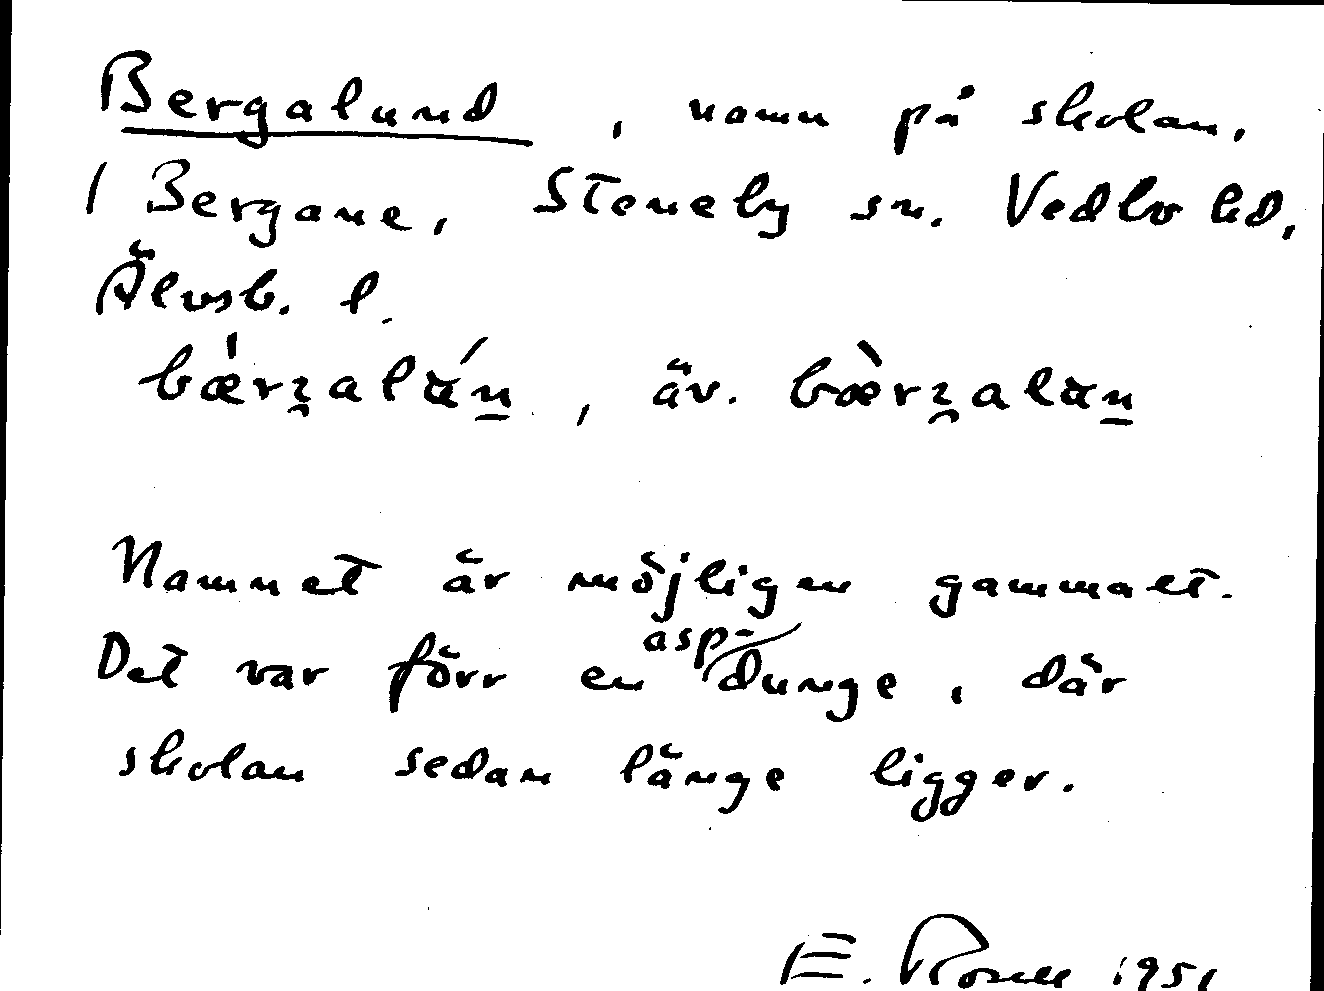 Bergalund, namn på skolan,
i Bergane, Steneby sn. Vedbo hd,
Älvsb. l.
bærʒalán, äv. bærʒalan
Namnet är möjligen gammalt.
Det var förr en asp-dunge, där
skolan sedan länge ligger.
E. 1951